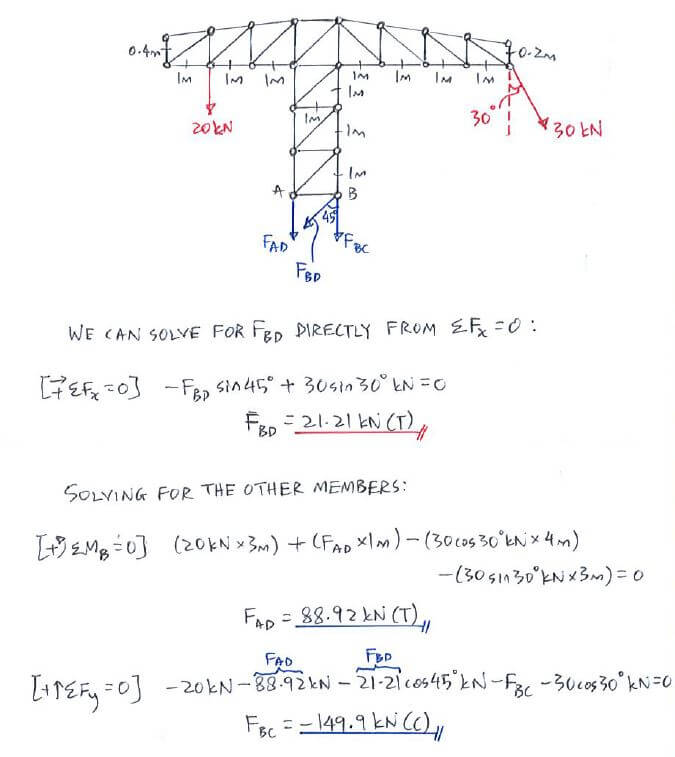 0.4m
0.2m
1m 1m 1m 1m 1m 1m 1m
1m
1m
1m
1m
20kN
30°
30 kN
A
B
45°
F_AD
F_BC
F_BD
WE CAN SOLVE FOR F_BD DIRECTLY FROM ΣF_x = 0 :
[→+ ΣF_x = 0] -F_BD sin45° + 30sin30° kN = 0
F_BD = 21.21 kN (T)
SOLVING FOR THE OTHER MEMBERS:
[+↺ ΣM_B = 0] (20kN × 3m) + (F_AD × 1m) - (30cos30° kN × 4m)
-(30sin30° kN × 3m) = 0
F_AD = 88.92 kN (T)
F_AD F_BD
[+↑ΣF_y = 0] -20kN - 88.92kN - 21.21cos45° kN - F_BC - 30cos30° kN = 0
F_BC = -149.9 kN (C)